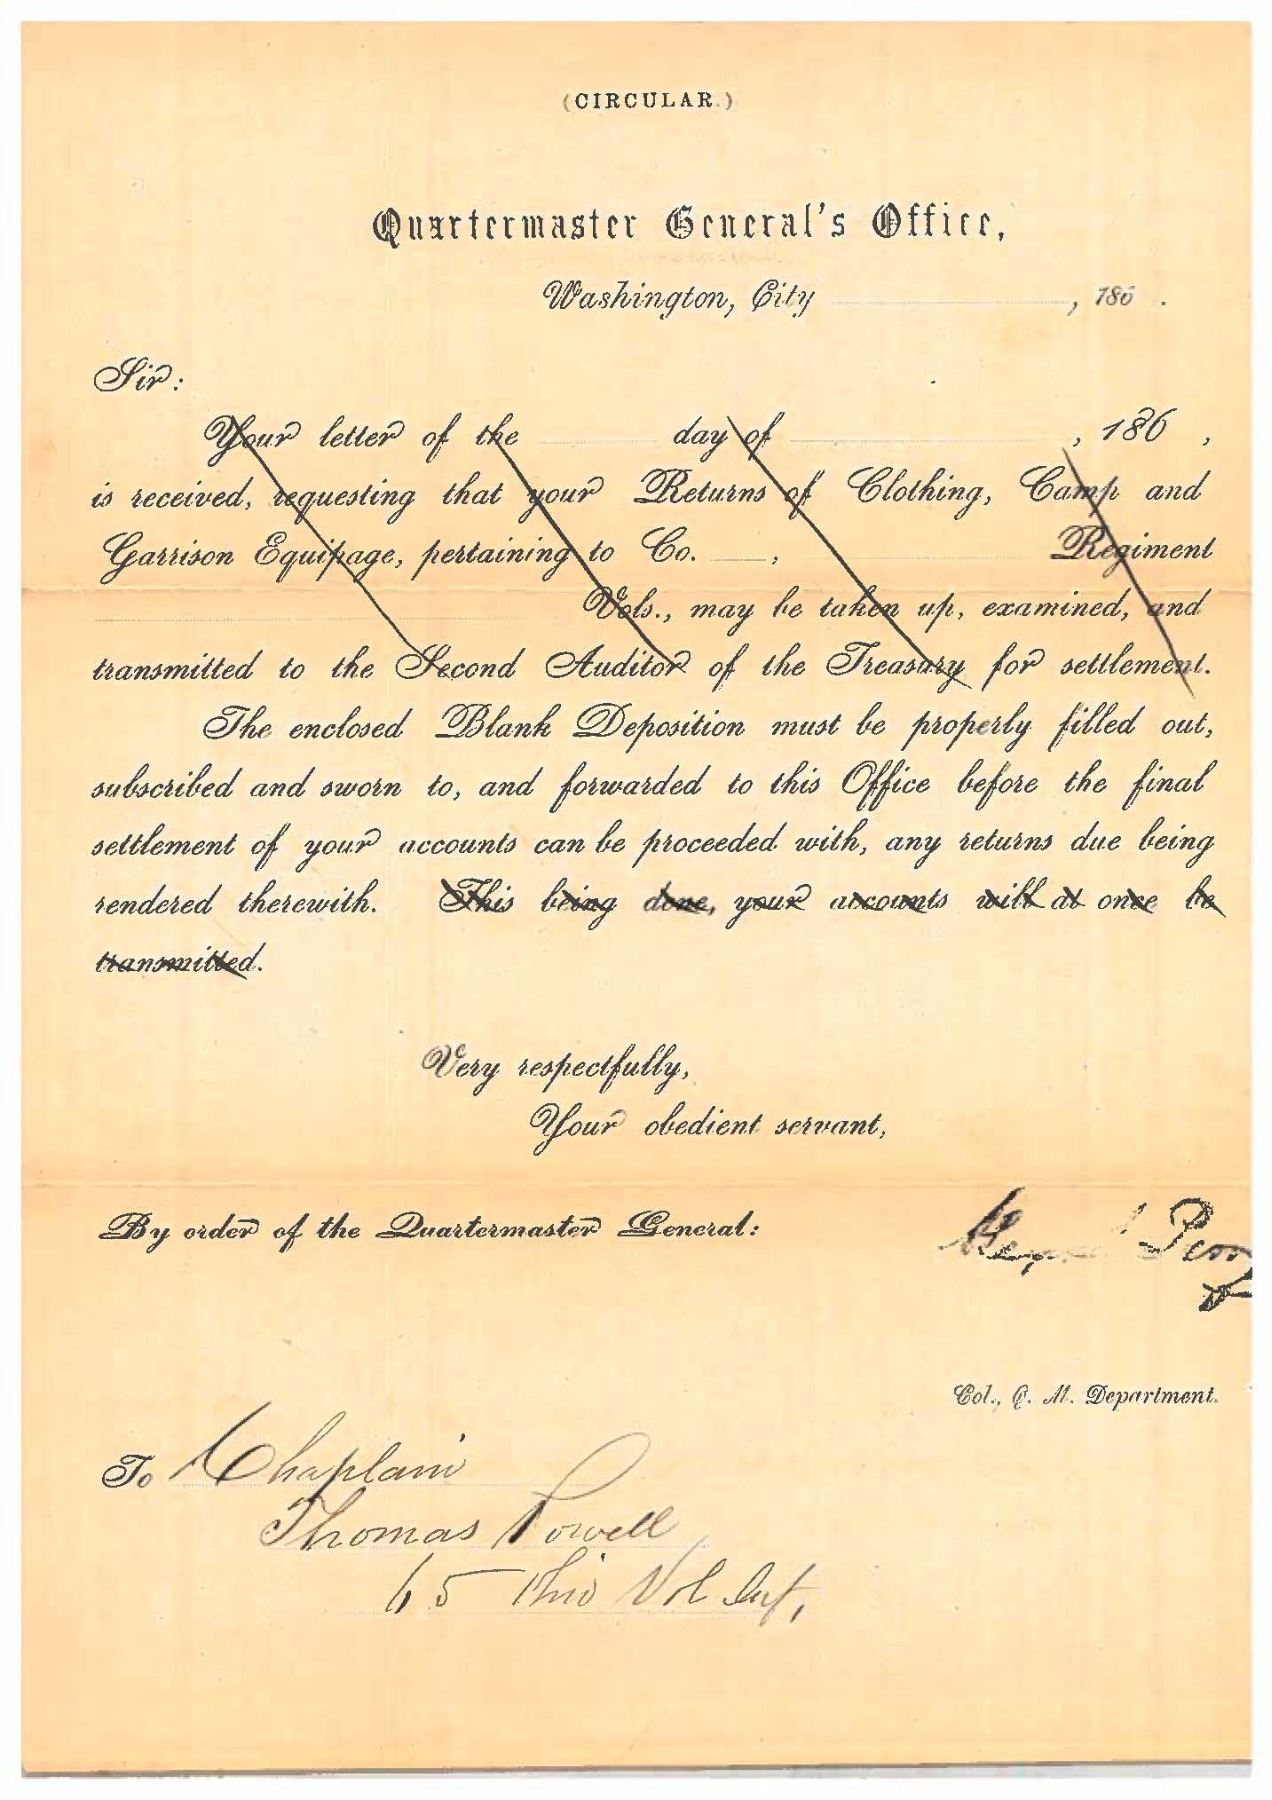 (CIRCULAR.)
Quartermaster General's Office,
Washington, City , 186 .
Sir:
Your letter of the day of , 186 ,
is received, requesting that your Returns of Clothing, Camp and
Garrison Equipage, pertaining to Co. , Regiment
Vols., may be taken up, examined, and
transmitted to the Second Auditor of the Treasury for settlement.
The enclosed Blank Deposition must be properly filled out,
subscribed and sworn to, and forwarded to this Office before the final
settlement of your accounts can be proceeded with, any returns due being
rendered therewith. This being done, your accounts will at once be
transmitted.
Very respectfully,
Your obedient servant,
By order of the Quartermaster General:
Col., Q. M. Department.
To Chaplain
Thomas Powell
65 Ohio Vol Inf,